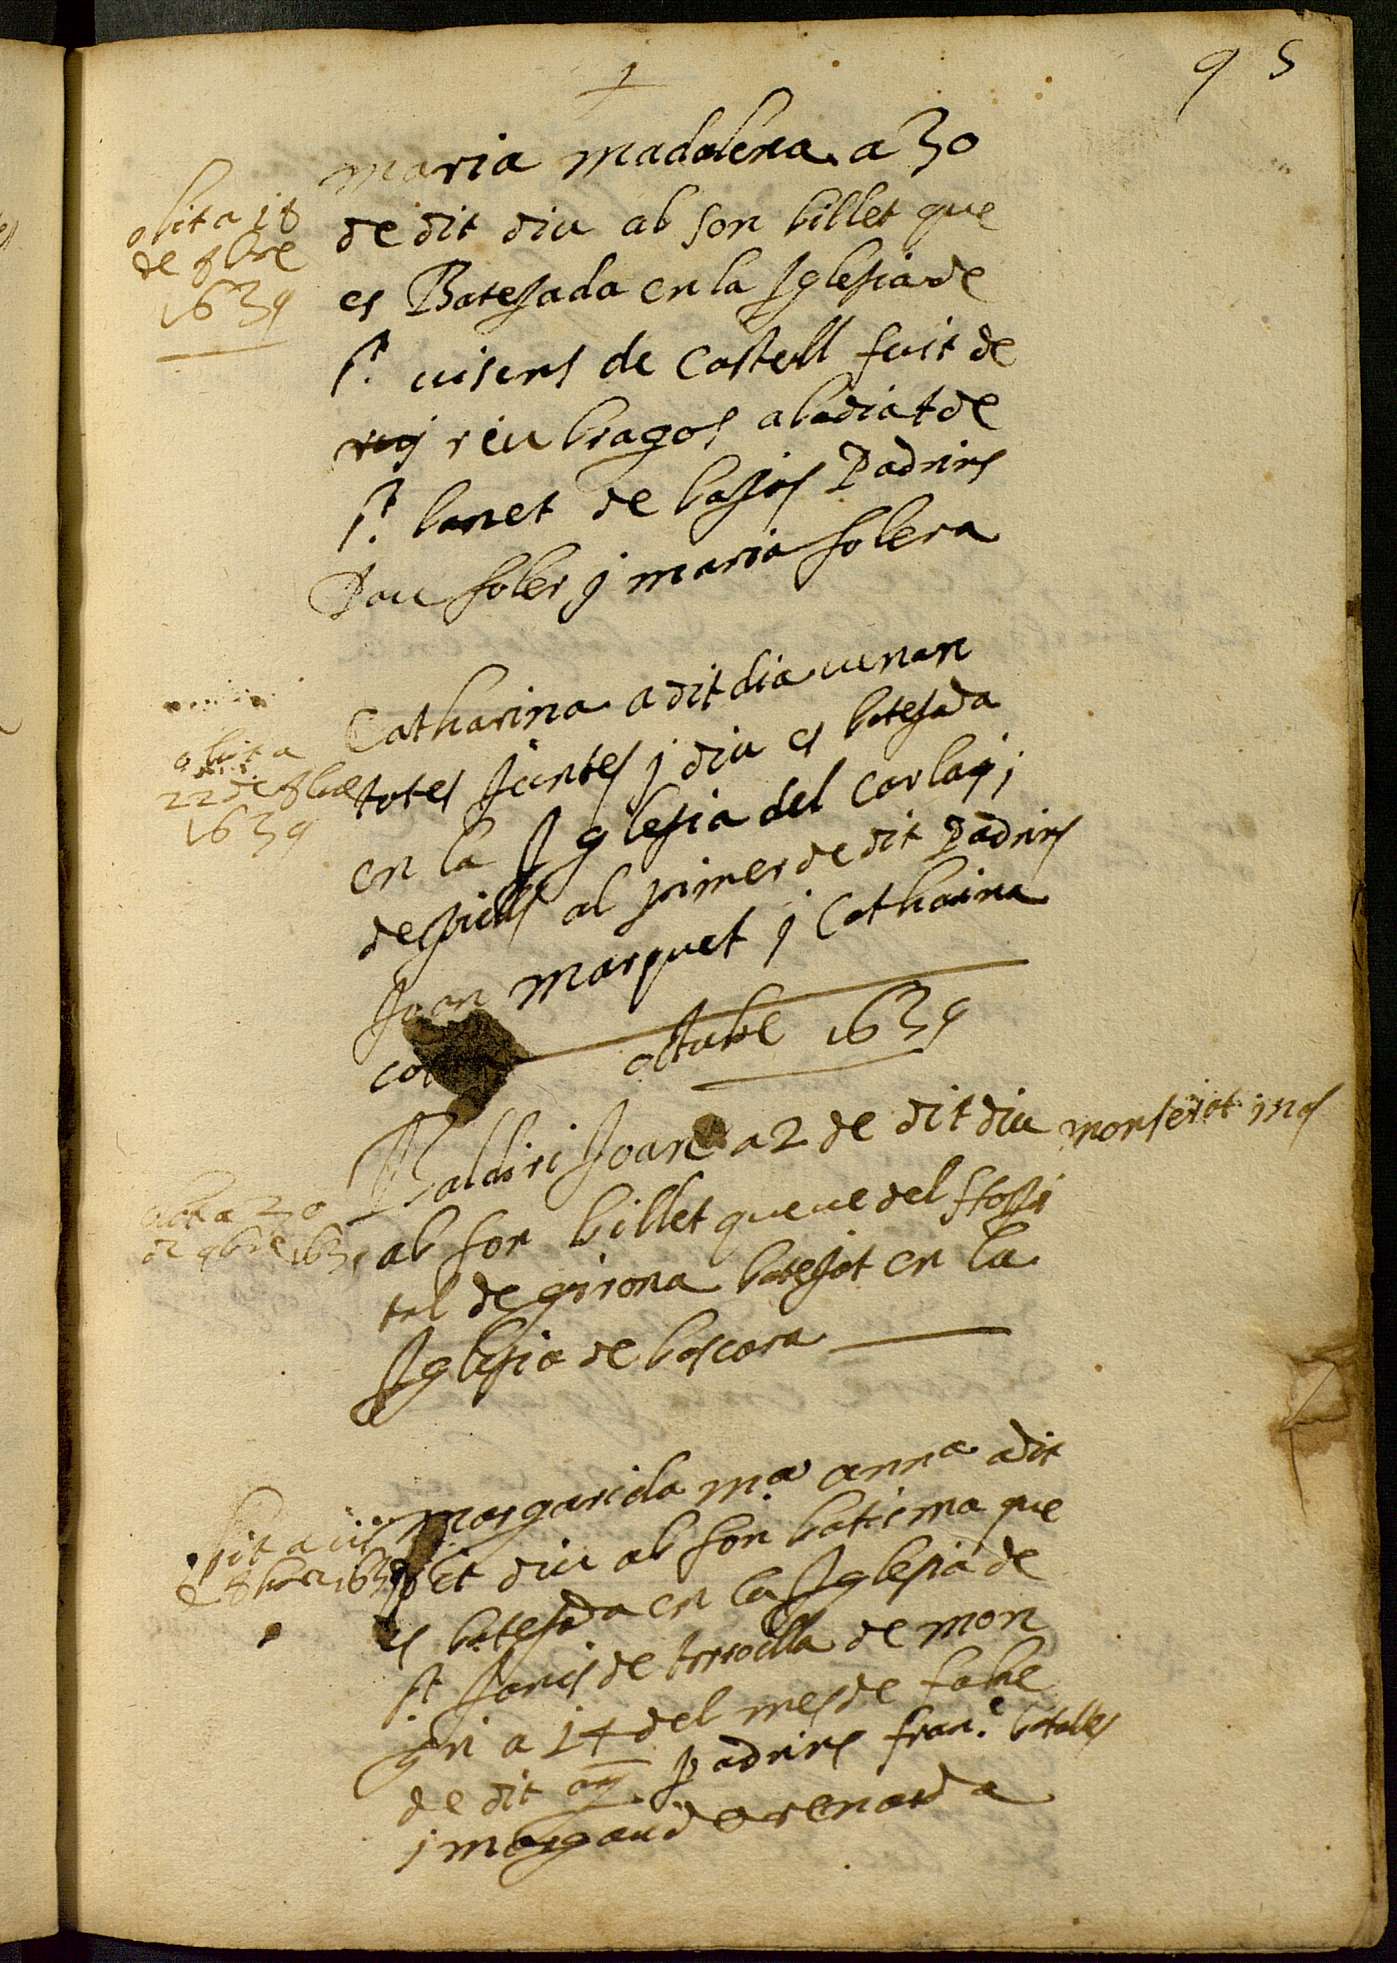 95
maria madalena a 30
de dit diu ab son billet que
es Batejada en la Iglesia de
st. uisens de Castell fuit de
riu bragos abadiat de
st. banet de bajas Padrins
Pau soler j maria solera
obit a 18
de 8bre
1639
Catharina a dit dia uenan
totes juntes j diu es batejada
en la Iglesia del
al primer de dit Padrins
Joan marquet j Catharina
obit a
22 de 8bre
1639
octubre 1639
Baldiri Joan a 2 de dit diu monserrat
ab son billet que ue del
tal de girona batejat en la
Iglesia de bascara
obit a 30
de 9bre 163
margarida ma anna a dit
dit diu ab son batisma que
es batejada en la Iglesia de
st de torroella de mon
gri a 14 del mes de
de dit ay Padrins franc. batalles
j
obit a